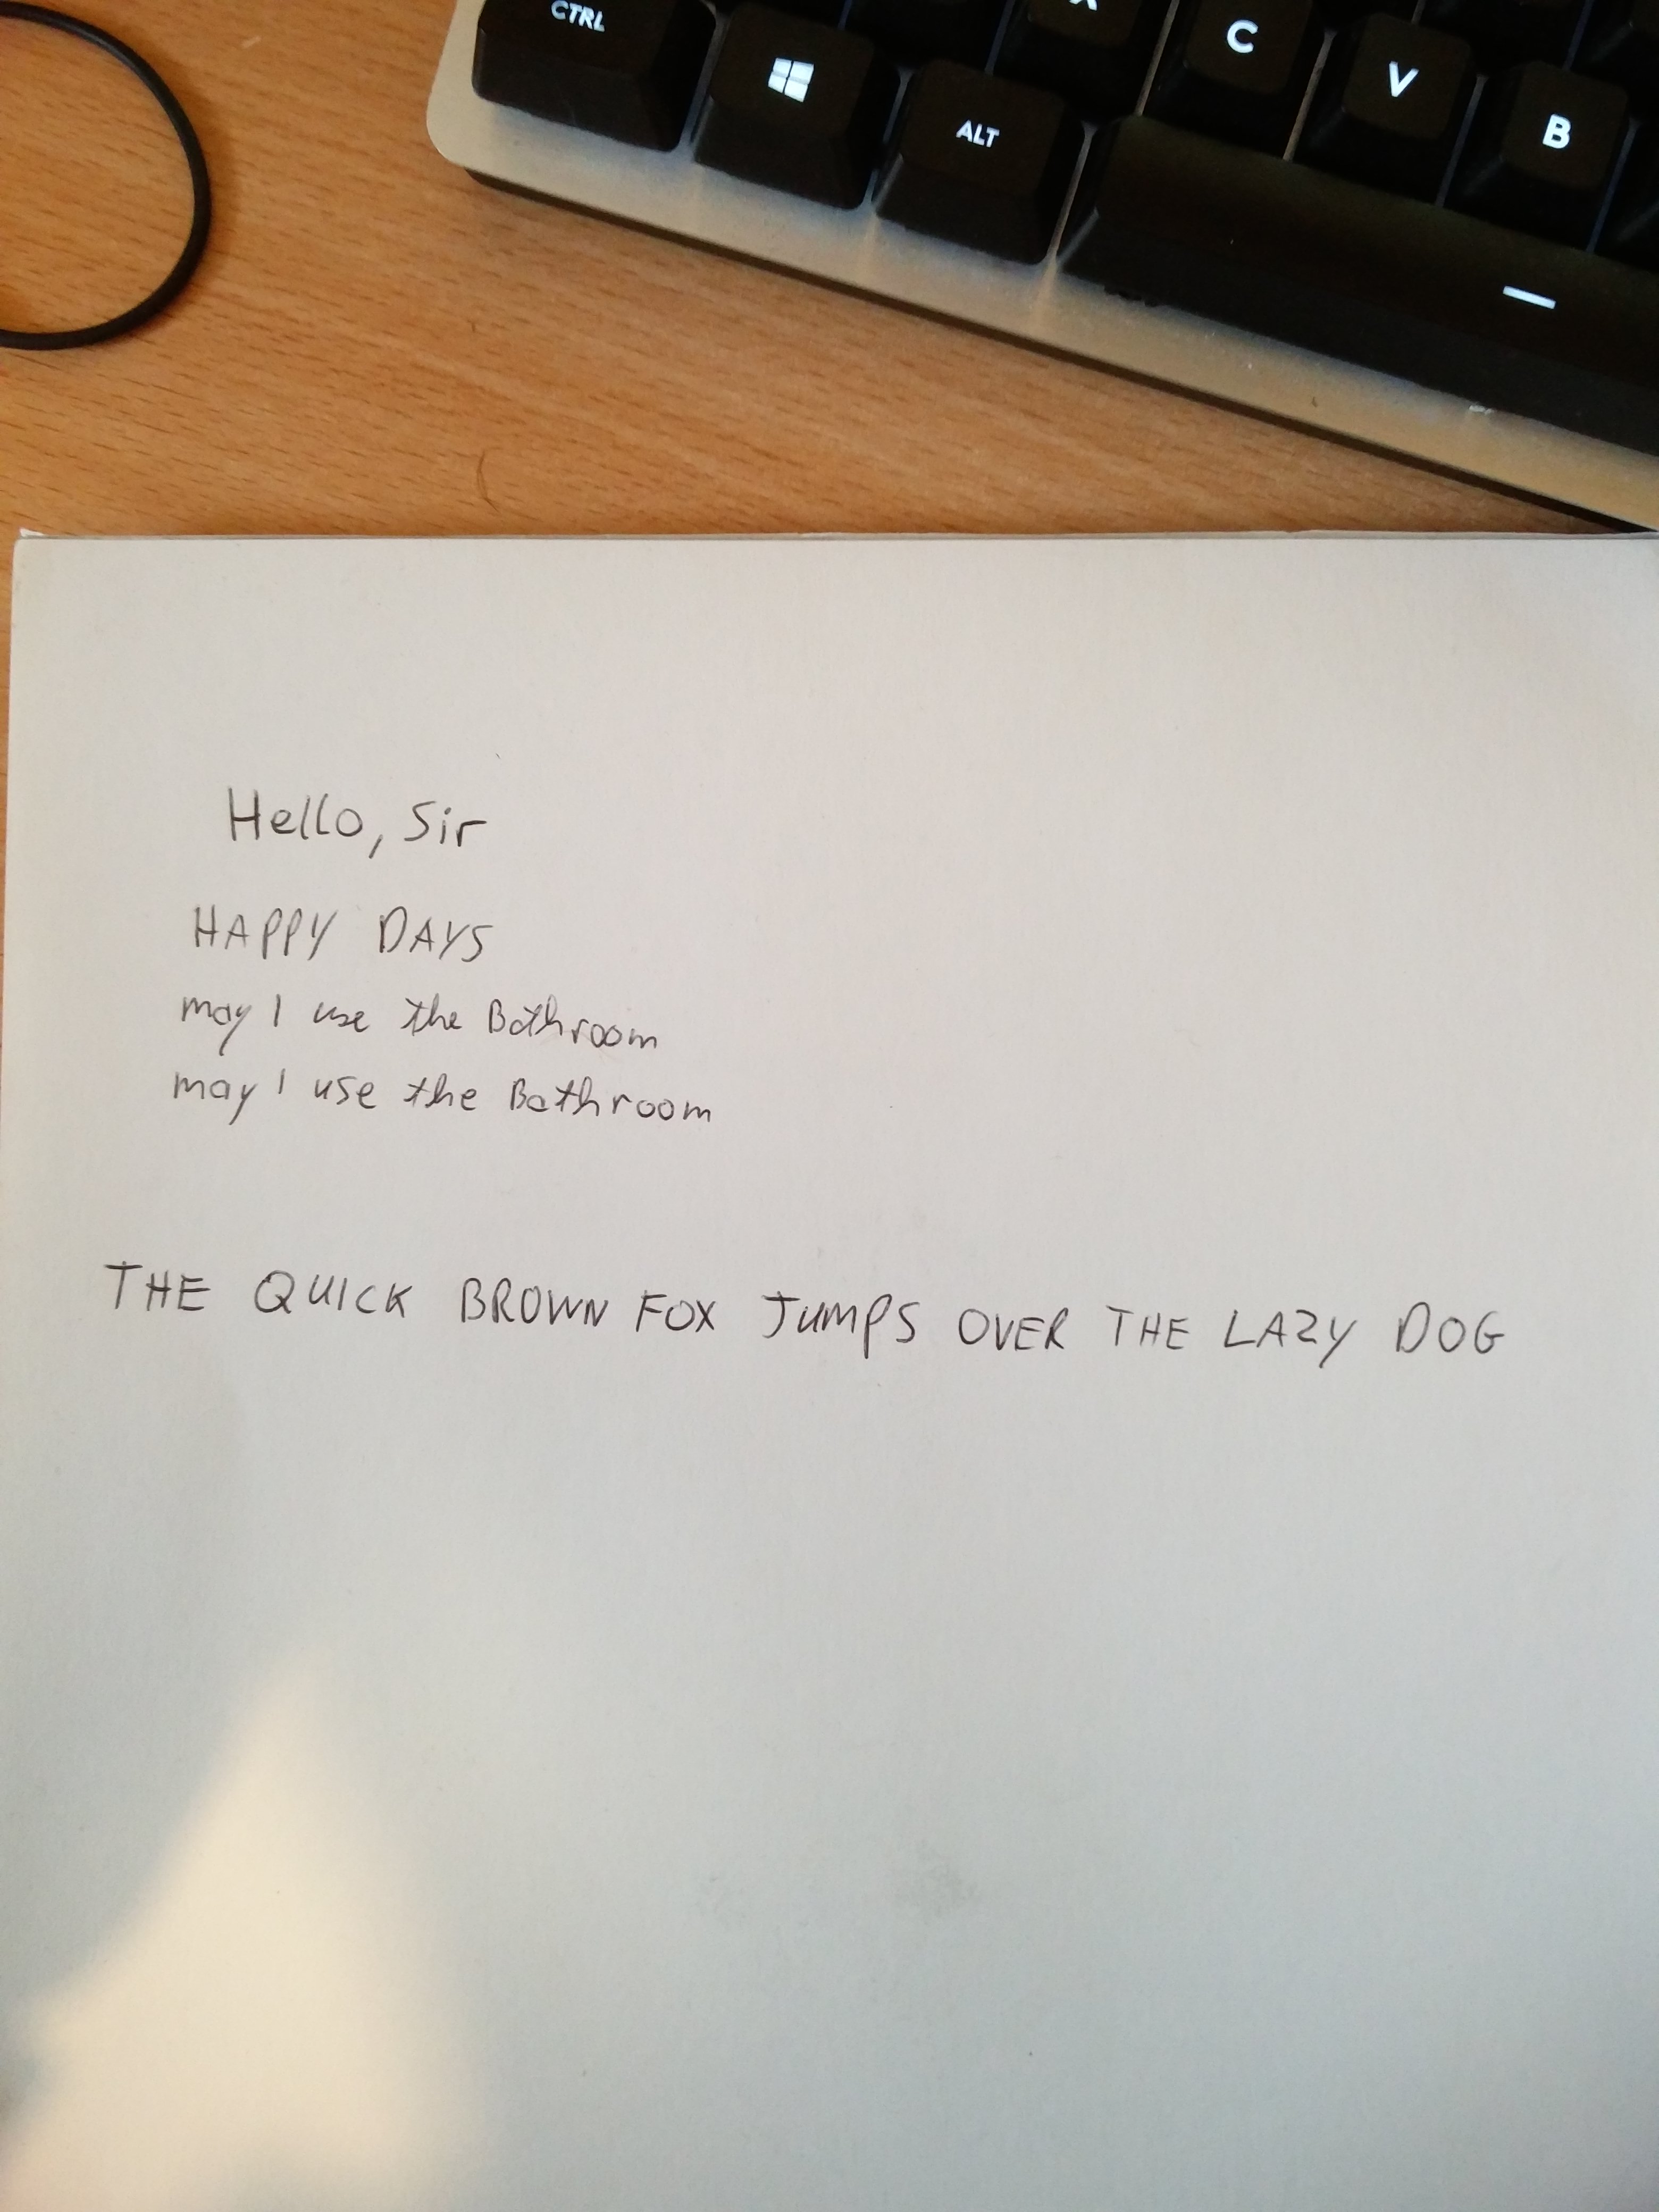 CTRL
ALT
X
C
V
B
Hello, Sir
HAPPY DAYS
may I use the Bathroom
may I use the Bathroom
THE QUICK BROWN FOX JUMPS OVER THE LAZY DOG